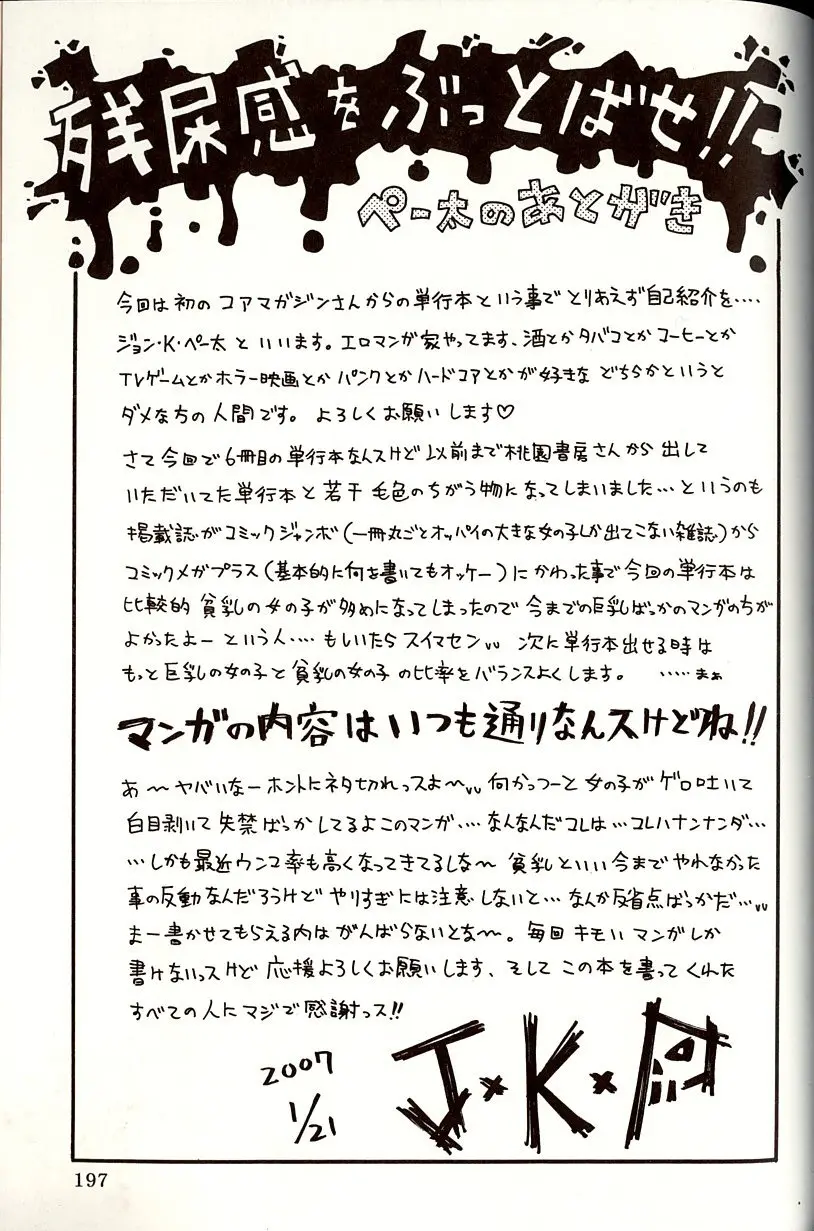 残尿感をぶっとばせ!!
ペー太のあとがき
今回は初の コアマガジンさんからの単行本という事で とりあえず自己紹介を‥‥
ジョン・K・ペー太 といいます。エロマンガ家やってます、酒とかタバコとかコーヒーとか
TVゲームとかホラー映画とか パンクとかハードコアとかが好きな どちらかというと
ダメな方の人間です。 よろしくお願いします♡
さて今回で6冊目の単行本なんスけど 以前まで桃園書房さんから 出して
いただいてた単行本と若干 毛色のちがう物になってしまいました…というのも
掲載誌がコミックジャンボ(一冊丸ごとオッパイの大きな女の子しか出てこない雑誌)から
コミックメガプラス(基本的に何を書いてもオッケー)にかわった事で今回の単行本は
比較的 貧乳の女の子が多めになってしまったので 今までの巨乳ばっかのマンガのちが
よかったよー という人‥‥ もしいたら スイマセン 次に単行本出せる時は
もっと巨乳の女の子と貧乳の女の子 の比率をバランスよくします。 ‥‥‥まぁ
マンガの内容はいつも通りなんスけどね!!
あ〜 ヤバいなー ホントにネタ切れっスよ〜 何かっつーと 女の子が ゲロ吐いて
白目剥いて 失禁ばっかしてるよこのマンガ‥‥ なんなんだコレは…コレハナンナンダ…
…しかも最近ウンコ率も高くなってきてるしな〜 貧乳といい今までやれなかった
事の反動なんだろうけど やりすぎには注意しないと… なんか反省点ばっかだ…
まー書かせてもらえる内は がんばらないとな〜。毎回 キモい マンガしか
書けないっスけど 応援よろしくお願いします、そして この本を買って くれた
すべての人に マジで 感謝っス!!
2007
1/21
J×K×P
197